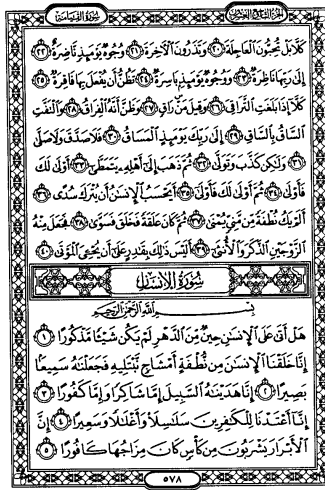 الجزء التاسع والعشرون سورة القيامة
كَلَّا بَلْ تُحِبُّونَ الْعَاجِلَةَ ٢٠ وَتَذَرُونَ الْآخِرَةَ ٢١ وُجُوهٌ يَوْمَئِذٍ نَاضِرَةٌ ٢٢
إِلَىٰ رَبِّهَا نَاظِرَةٌ ٢٣ وَوُجُوهٌ يَوْمَئِذٍ بَاسِرَةٌ ٢٤ تَظُنُّ أَنْ يُفْعَلَ بِهَا فَاقِرَةٌ ٢٥
كَلَّا إِذَا بَلَغَتِ التَّرَاقِيَ ٢٦ وَقِيلَ مَنْ رَاقٍ ٢٧ وَظَنَّ أَنَّهُ الْفِرَاقُ ٢٨ وَالْتَفَّتِ
السَّاقُ بِالسَّاقِ ٢٩ إِلَىٰ رَبِّكَ يَوْمَئِذٍ الْمَسَاقُ ٣٠ فَلَا صَدَّقَ وَلَا صَلَّىٰ
٣١ وَلَٰكِنْ كَذَّبَ وَتَوَلَّىٰ ٣٢ ثُمَّ ذَهَبَ إِلَىٰ أَهْلِهِ يَتَمَطَّىٰ ٣٣ أَوْلَىٰ لَكَ
فَأَوْلَىٰ ٣٤ ثُمَّ أَوْلَىٰ لَكَ فَأَوْلَىٰ ٣٥ أَيَحْسَبُ الْإِنْسَٰنُ أَنْ يُتْرَكَ سُدًى ٣٦
أَلَمْ يَكُ نُطْفَةً مِنْ مَنِيٍّ يُمْنَىٰ ٣٧ ثُمَّ كَانَ عَلَقَةً فَخَلَقَ فَسَوَّىٰ ٣٨ فَجَعَلَ مِنْهُ
الزَّوْجَيْنِ الذَّكَرَ وَالْأُنْثَىٰ ٣٩ أَلَيْسَ ذَٰلِكَ بِقَٰدِرٍ عَلَىٰ أَنْ يُحْيِيَ الْمَوْتَىٰ ٤٠
سُورَةُ الْإِنْسَانِ
بِسْمِ اللَّهِ الرَّحْمَٰنِ الرَّحِيمِ
هَلْ أَتَىٰ عَلَى الْإِنْسَٰنِ حِينٌ مِنَ الدَّهْرِ لَمْ يَكُنْ شَيْئًا مَذْكُورًا ١
إِنَّا خَلَقْنَا الْإِنْسَٰنَ مِنْ نُطْفَةٍ أَمْشَاجٍ نَبْتَلِيهِ فَجَعَلْنَٰهُ سَمِيعًا
بَصِيرًا ٢ إِنَّا هَدَيْنَٰهُ السَّبِيلَ إِمَّا شَاكِرًا وَإِمَّا كَفُورًا ٣
إِنَّا أَعْتَدْنَا لِلْكَٰفِرِينَ سَلَٰسِلَا وَأَغْلَٰلًا وَسَعِيرًا ٤ إِنَّ
الْأَبْرَارَ يَشْرَبُونَ مِنْ كَأْسٍ كَانَ مِزَاجُهَا كَافُورًا ٥
٥٧٨